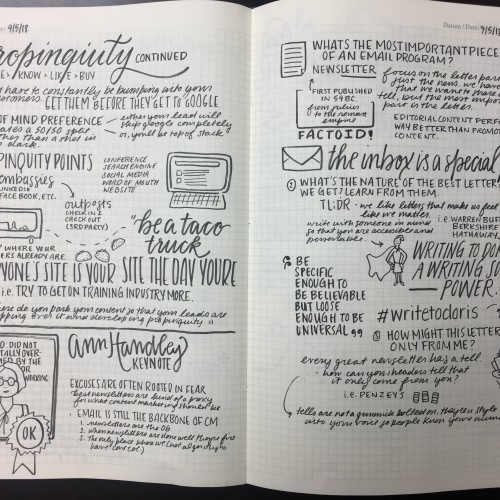 9/5/18
ropinquity CONTINUED
KNOW > LIKE > BUY
have to constantly be bumping into your
GET THEM BEFORE THEY GET TO GOOGLE
OF MIND PREFERENCE
a 50/50 split
either your lead will
skip google completely
or, you'll be top of stack
PINQUITY POINTS
embassies
FACE BOOK, ETC.
outposts
CHECK IN &
CHECK OUT
(3RD PARTY)
CONFERENCE
SEARCH ENGINE
SOCIAL MEDIA
WORD OF MOUTH
WEBSITE
WHERE YOUR
ALREADY ARE.
"be a taco
truck
YONE'S SITE IS YOUR SITE THE DAY YOU'RE
i.e. TRY TO GET ON TRAINING INDUSTRY MORE.
do you park your content so that your leads are
over it and developing propinquity
DID NOT
BY THE
WORKING
OK
Ann Handley
KEYNOTE
EXCUSES ARE OFTEN ROOTED IN FEAR
best newsletters are kind of a proxy
for what content marketing should be
EMAIL IS STILL THE BACKBONE OF CM
1. newsletters are the OG
2. when newsletters are done well they're
3. The only place where we (not algorithms)
have control
Datum / Date: 9/5/18
WHAT'S THE MOST IMPORTANT PIECE
OF AN EMAIL PROGRAM?
NEWSLETTER
focus on the letter
just the news. we have
that we want to share
tell, but the most
part is the letter.
FIRST PUBLISHED
IN 59 BC.
from
to the roman
empire
FACTOID!
EDITORIAL CONTENT PERF
WAY BETTER THAN PROMO
CONTENT.
the inbox is a special
① WHAT'S THE NATURE OF THE BEST LETTER
WE GET? LEARN FROM THEM.
TL;DR - we like letters that make us feel
like we matter.
write with someone in mind
so that you are accessible and
personable.
i.e. WARREN BUF
BERKSHIRE
HATHAWAY
WRITING TO DO
A WRITING S
POWER.
"BE
SPECIFIC
ENOUGH TO
BE BELIEVABLE
BUT LOOSE
ENOUGH TO BE
UNIVERSAL"
#writetodoris
② HOW MIGHT THIS LETTER
ONLY FROM ME?
every great newsletter has a tell
- how can your readers tell that
it only come from you?
i.e. PENZEY'S
tells are not a gimmick bolted on. they're a style
into your voice so people know you're